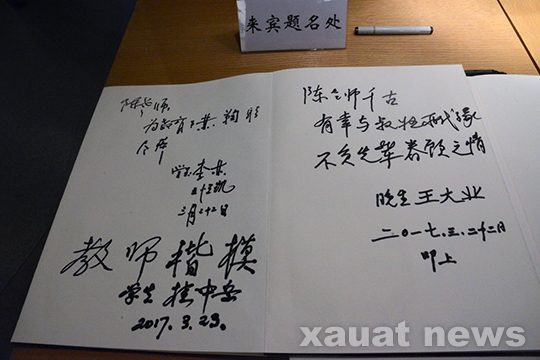 来宾题名处
陈老师
为教育事业鞠躬
尽瘁
学生
三月二十二日
教师楷模
学生桂中岳
2017.3.23.
陈老师千古
有幸与叔姪两代缘
不负先辈眷顾之情
晚生王大业
二〇一七.三.二十二日
叩上
xauat news